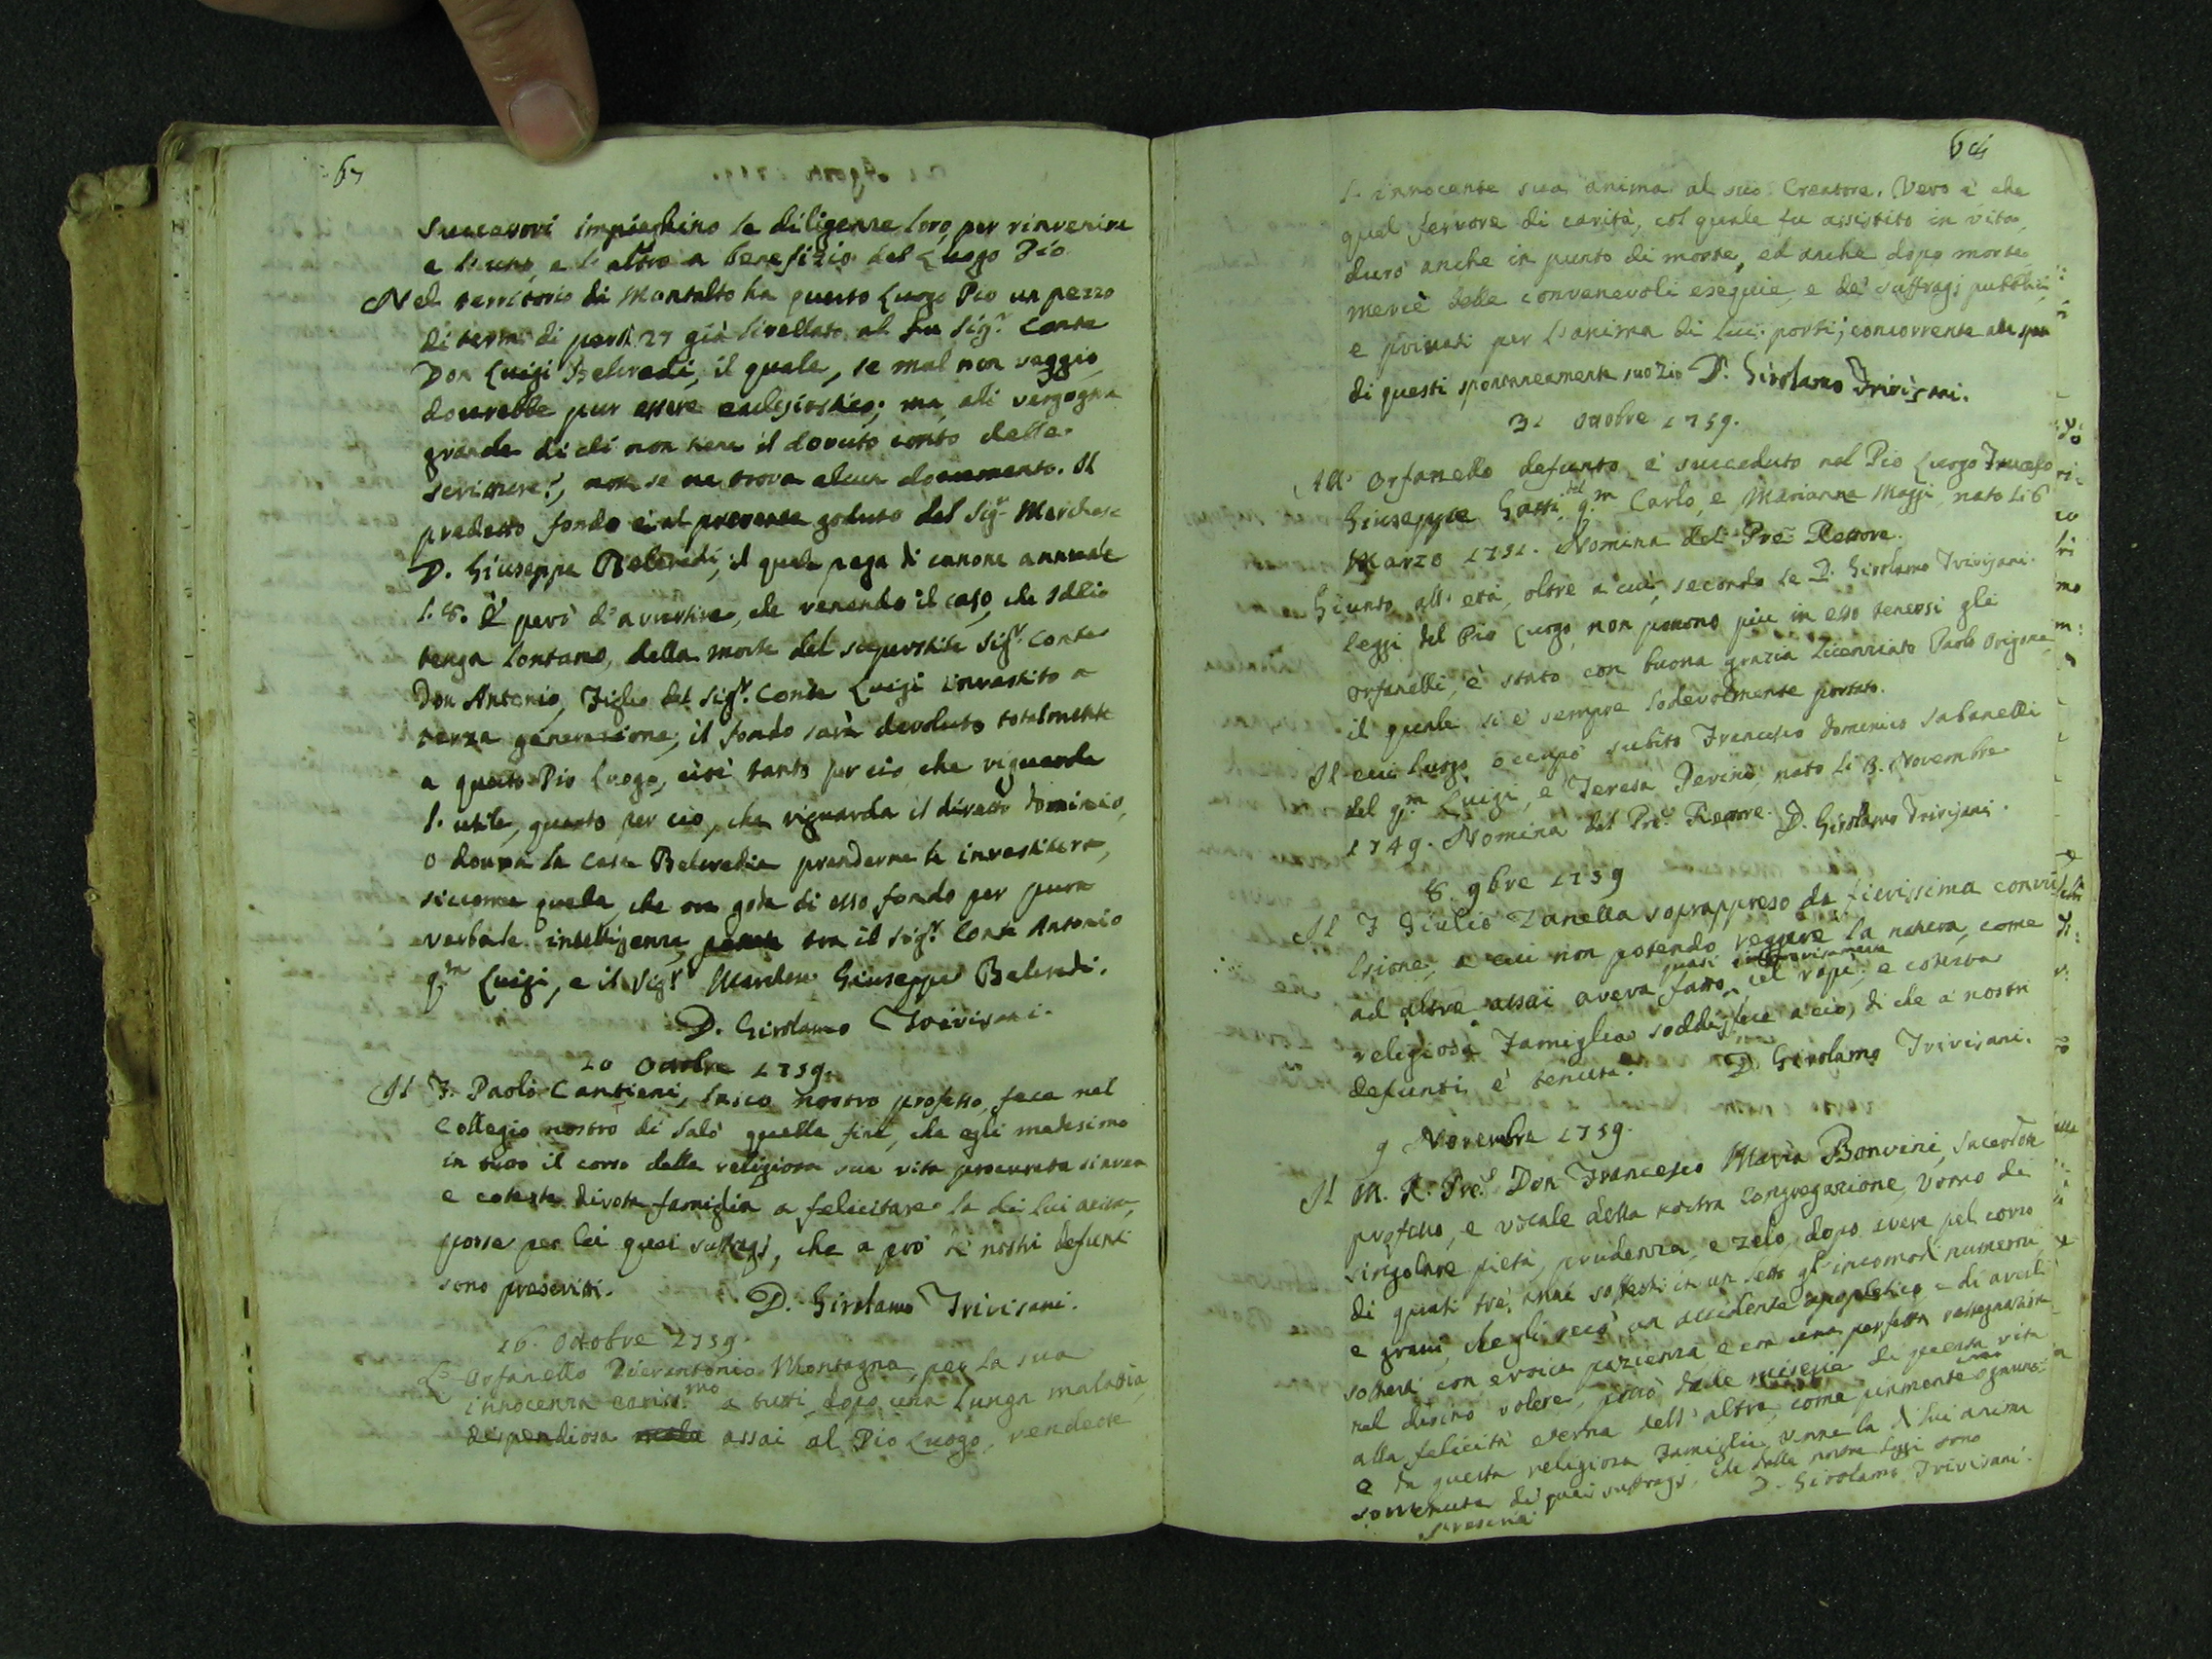 67
successori impieghino le diligenze loro, per rinvenire
e l'uno, e l'altro a benefizio del Luogo Pio
Nel territorio di Montalto ha questo Luogo Pio un pezzo
di terra di pert. 27 già livellato al fu Sig.r Conte
Don Luigi Belcredi, il quale, se mal non veggio,
dovrebbe pur essere ecclesiastico; ma, ahi vergogna
grande di chi non tiene il dovuto conto delle
scritture!, non se ne trova alcun documento. Il
predetto fondo è al presente goduto dal Sig.r Marchese
D. Giuseppe Belcredi, il quale paga di canone annuale
l. 8. È però d'avvertire, che venendo il caso, che Iddio
tenga lontano, della morte del superstite Sig.r Conte
Don Antonio, Figlio del Sig.r Conte Luigi investito a
terza generazione, il fondo sarà devoluto totalmente
a questo Pio Luogo, così tanto per ciò, che riguarda
l'utile, quanto per ciò, che riguarda il diretto dominio,
o dovrà la casa Belcredia prenderne le investiture,
siccome quella, che ora gode di esso fondo per pura
verbale intelligenza tra il Sig.r Conte Antonio
q.m Luigi, e il Sig.r Marchese Giuseppe Belcredi.
D. Girolamo Trivisani.
10 Ottobre 1759.
Il F. Paolo Cantieni, laico nostro professo, fece nel
Collegio nostro di Salò quella fine, che egli medesimo
in tutto il corso della religiosa sua vita procurata
e cotesta divota famiglia a felicitare la di lui anima,
porse per lei quei suffragj, che a prò de' nostri defunti
sono prescritti.
D. Girolamo Trivisani.
16. Ottobre 1759.
L'orfanello Pierantonio Montagna, per la sua
innocenza cariss.mo a tutti, dopo una lunga malattia,
dispendiosa assai al Pio Luogo, rendette
68
l'innocente sua anima al suo Creatore. Vero è che
quel fervore di carità, col quale fu assistito in vita,
durò anche in punto di morte, ed anche dopo morte
mercè delle convenevoli esequie, e de' suffragj pubblici,
e privati per l'anima di lui porti; concorrente alle spese
di questi spontaneamente suo Zio D. Girolamo Trivisani.
31 Ottobre 1759.
All'Orfanello defunto è succeduto nel Pio Luogo Francesco
Giuseppe Gatti del q.m Carlo, e Marianna Maggi, nato li 6
Marzo 1751. Nomina del Prè Rettore.
D. Girolamo Trivisani.
Giunto all'età, oltre a cui, secondo le
leggi del Pio Luogo, non ponono più in esso tenersi gli
orfanelli, è stato con buona grazia licenziato Paolo Origone,
il quale si è sempre lodevolmente portato.
Il cui luogo occupò subito Francesco Domenico Sabanelli
del q.m Luigi, e Teresa Perini, nato li 3. Novembre
1749. Nomina del Prè Rettore. D. Girolamo Trivisani.
8. 9bre 1759
Il F. Giulio Zanella soprappreso da fierissima convul
lsione, a cui non potendo reggere la natura, come
quasi improvvisamente
ad altre assai aveva fatto, cel rapì; e cotesta
religiosa Famiglia soddisfece a ciò, di che a' nostri
defunti è tenuta. D. Girolamo Trivisani.
9 Novembre 1759.
Il M. R. Prè Don Francesco Maria Bonvini, Sacerdote
professo, e vocale della nostra Congregazione, Uomo di
singolare pietà, prudenza, e zelo, dopo avere pel corso
di quasi trè anni sofferti in un letto gl'incomodi numerosi,
e gravi, che gli recò un accidente apopletico, e di averli
sofferti con eroica pazienza e con una perfetta rassegnazione
nel divino volere, passò dalle miserie di questa vita
alla felicità eterna dell'altra, come piamente ognuno
e da questa religiosa Famiglia venne la di lui anima
sovvenuta di quei suffragj, che dalle nostre leggi sono
prescritti D. Girolamo Trivisani.